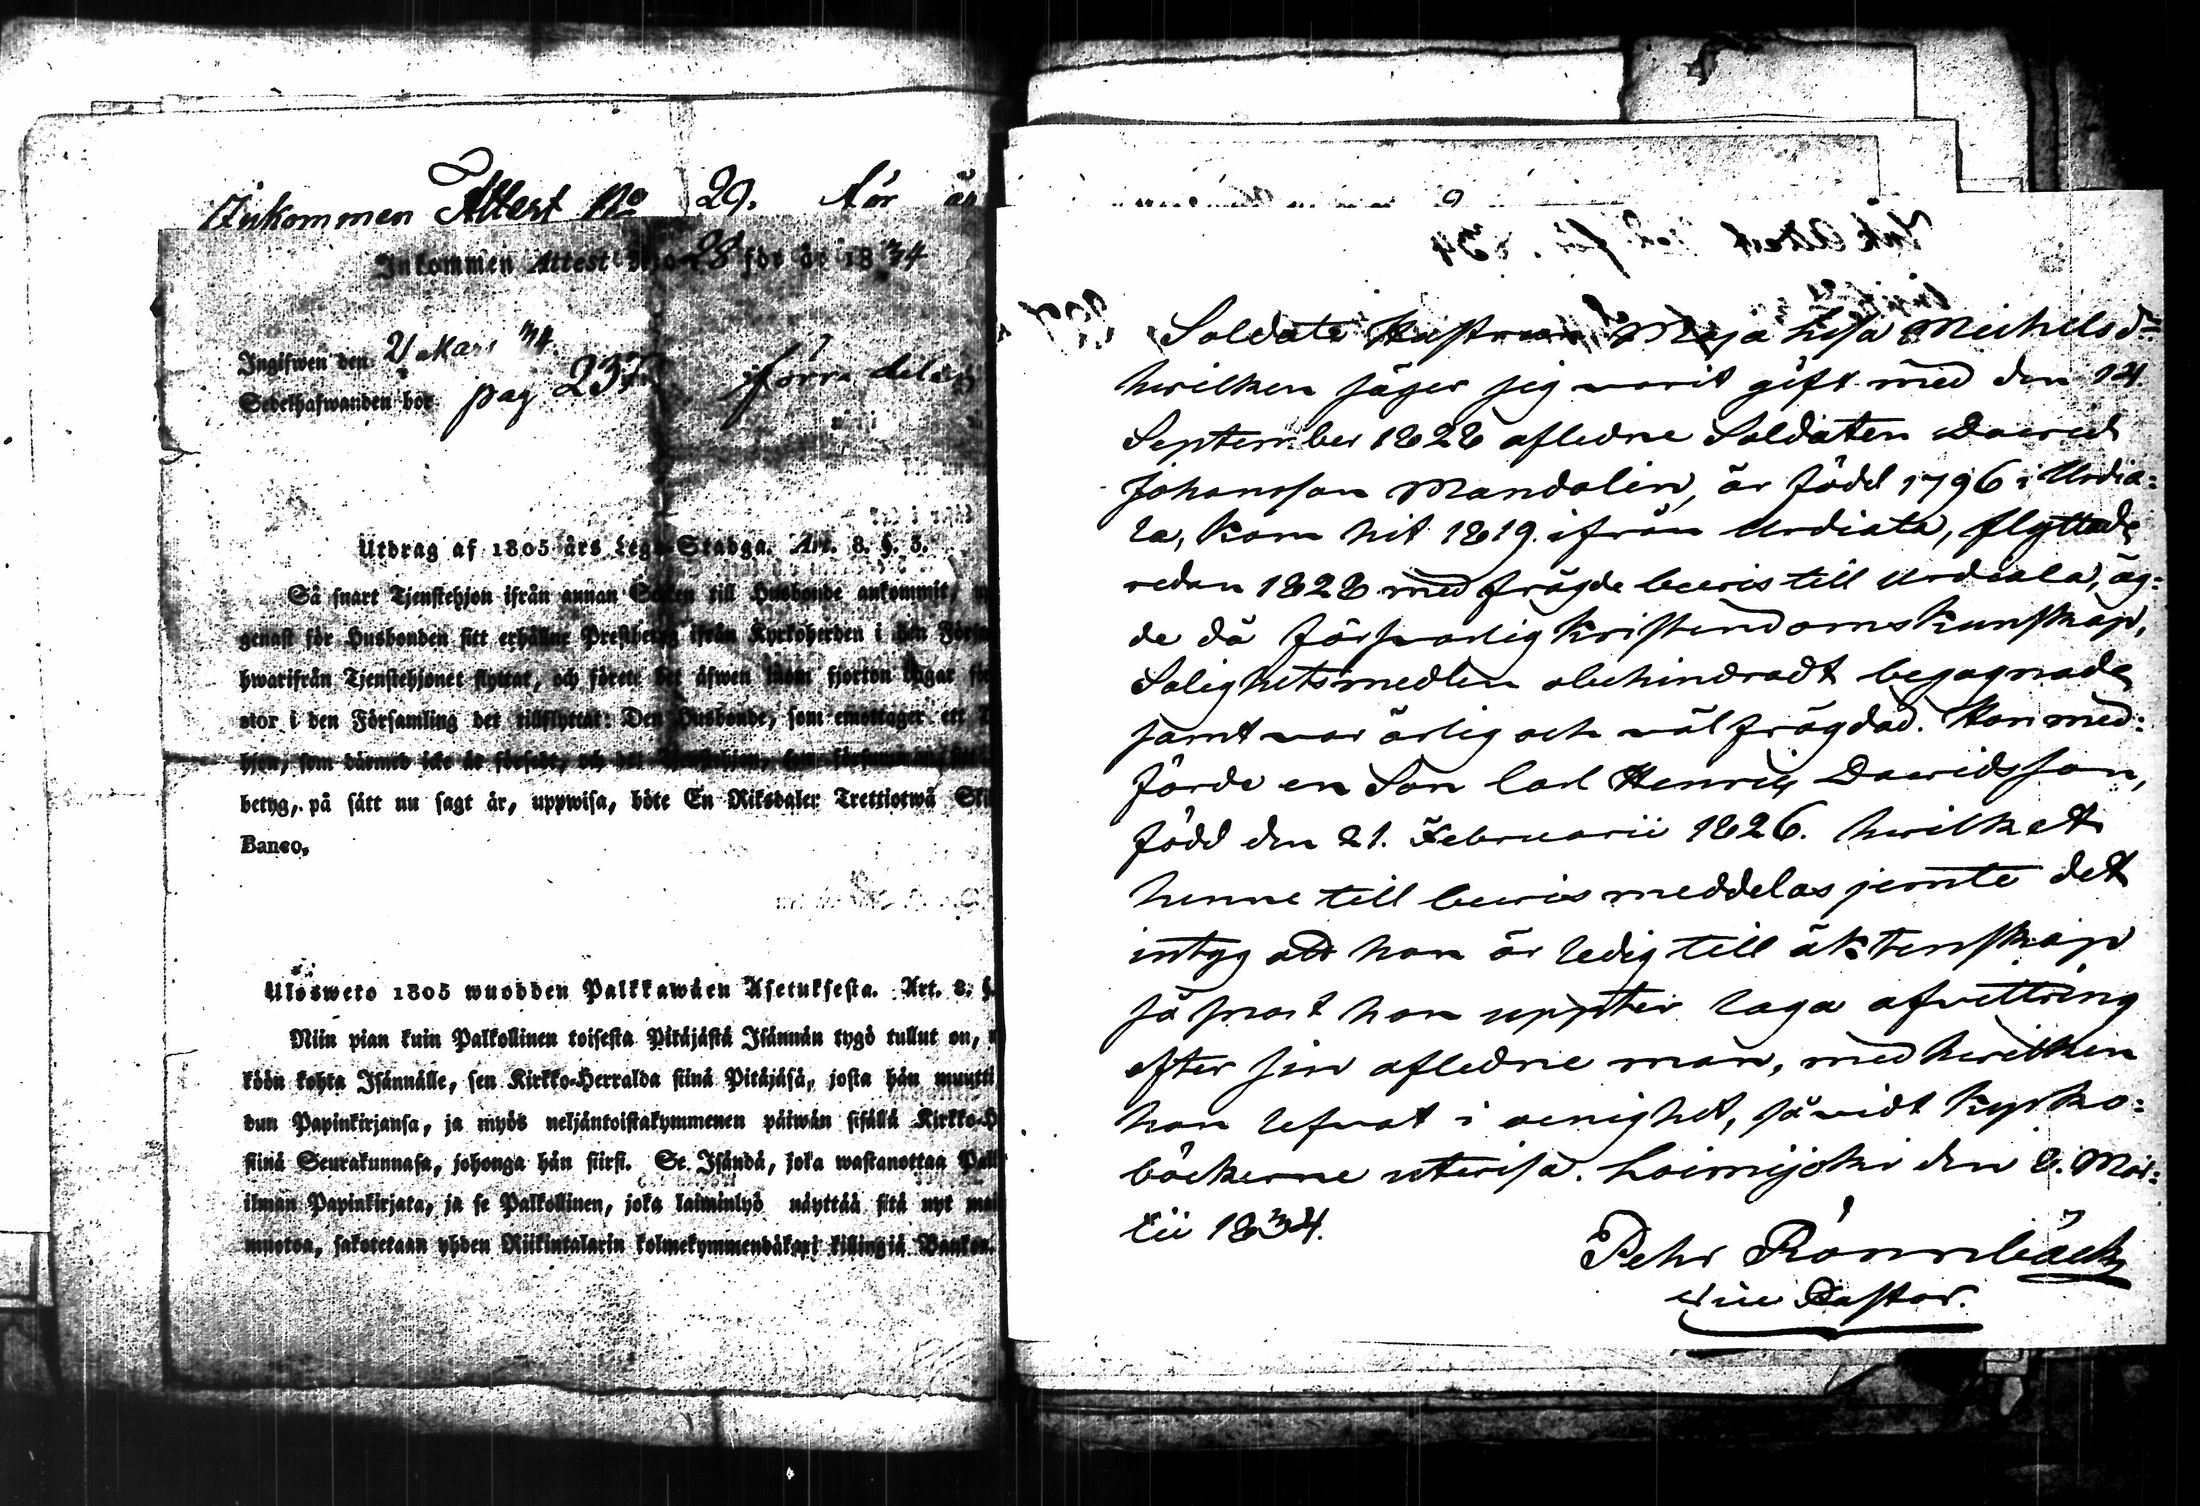 Inkommen Attest No 29. för år
Inkommen Attest No 28 för år 1834
Ingifwen den 21 Mars 34.
Sedelhafwanden bör pag 237
förra delen
Utdrag af 1805 års Lego-Stadga. Art. 8. §. 5.
Så snart Tjenstehjon ifrån annan Socken till Husbonde ankommit,
genast för Husbonden sitt erhållne Prestbetyg ifrån Kyrkoherden i den Försam
hwarifrån Tjenstehjonet flyttat, och förete det äfwen inom fjorton dagar för
stor i den Församling det tillflyttat: Den Husbonde, som emottager ett
hjon, som därmed icke är försedt, och det Tjenstehjon, som försummar sitt
betyg, på sätt nu sagt är, uppwisa, böte En Riksdaler Trettiotwå Skil
Banco.
Uloswero 1805 wuodden Palkkawäen Asetuksesta. Art. 8. §.
Niin pian kuin Palkollinen toisesta Pitäjästä Isännän tygö tullut on,
köön kohta Isännälle, sen Kirkko-Herralda siinä Pitäjäsä, josta hän muutti
dun Papinkirjansa, ja myös neljäntoistakymmenen päiwän sisällä Kirkko-H
siinä Seurakunnasa, johonga hän siirsi. Se Isändä, joka wastanottaa Pal
ilman Papinkirjata, ja se Palkollinen, joka laiminlyö näyttää sitä nyt mai
muotoa, sakotetaan yhden Riikintalarin kolmekymmendäkaxi killingiä Bankos.
Soldats Hustrun Maja Lisa Michelsdr
hwilken säger sig warit gift med den 14
September 1828 aflidne Soldaten David
Johansson Mandolin, är född 1796 i Urdia:
la, kom hit 1819 ifrån Urdiala, flyttade
redan 1828 med frägde bewis till Urdiala, äg:
de då försvarlig Kristendomskunskap,
Salighetsmedlen obehindradt begagnade
samt var ärlig och välfrägdad. Hon med:
förde en Son Carl Henric Davidsson,
född den 21. Februarii 1826. hwilket
henne till bewis meddelas jemte det
intyg att hon är ledig till äktenskap
så snart hon uppter laga afvittring
efter sin aflidne man, med hwilken
hon lefvat i oenighet, så vidt Kyrko:
böckerne utvisa. Loimijoki den 8. Mar:
tii 1834.
Pehr Rönnbäck
vice Pastor.